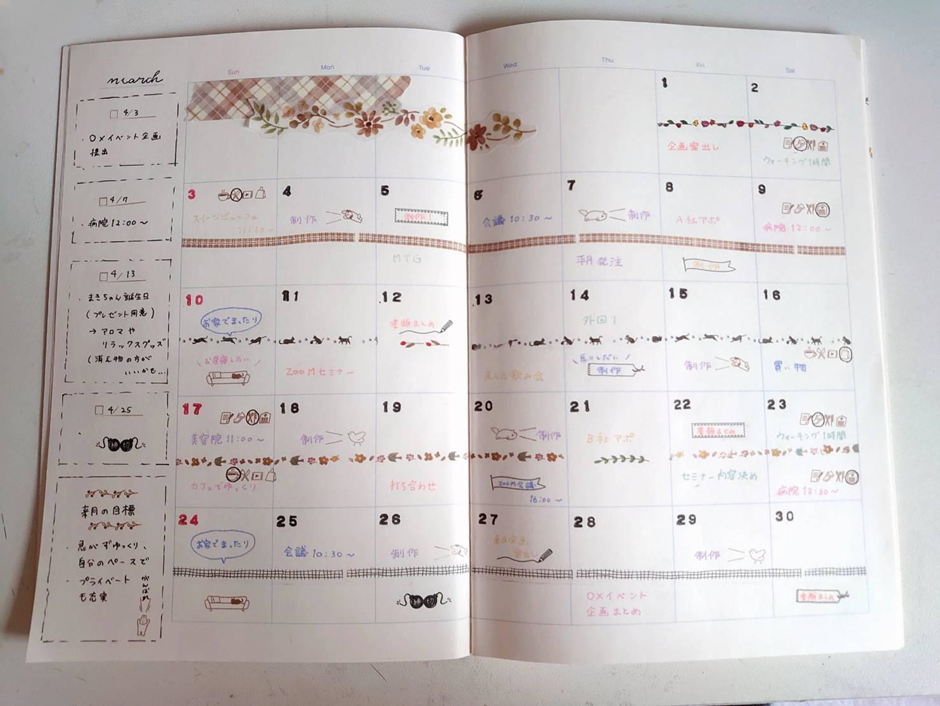 march
Sun
Mon
Tue
Wed
Thu
Fri
Sat
4/3
・○×イベント企画
提出
4/7
・病院12:00～
4/13
・まきちゃん誕生日
(プレゼント用意)
→アロマや
リラックスグッズ
(消え物の方が
いいかも…
4/25
来月の目標
・急がずゆっくり、
自分のペースで
・プライベート
も充実
1
企画案出し
2
ウォーキング1時間
3
4
制作
5
MTG
6
会議10:30～
7
制作
8
A社アポ
9
病院12:00～
10
お家でまったり
11
ZOOMセミナー
12
書類まとめ
13
14
外回り
制作
15
制作
16
買い物
17
美容院11:00～
カフェでゆっくり
18
制作
19
打ち合わせ
20
制作
ZOOM会議
16:00～
21
B社アポ
22
書類まとめ
セミナー内容決め
23
ウォーキング1時間
24
お家でまったり
25
会議10:30～
26
制作
27
28
○×イベント
企画まとめ
29
制作
30
書類まとめ